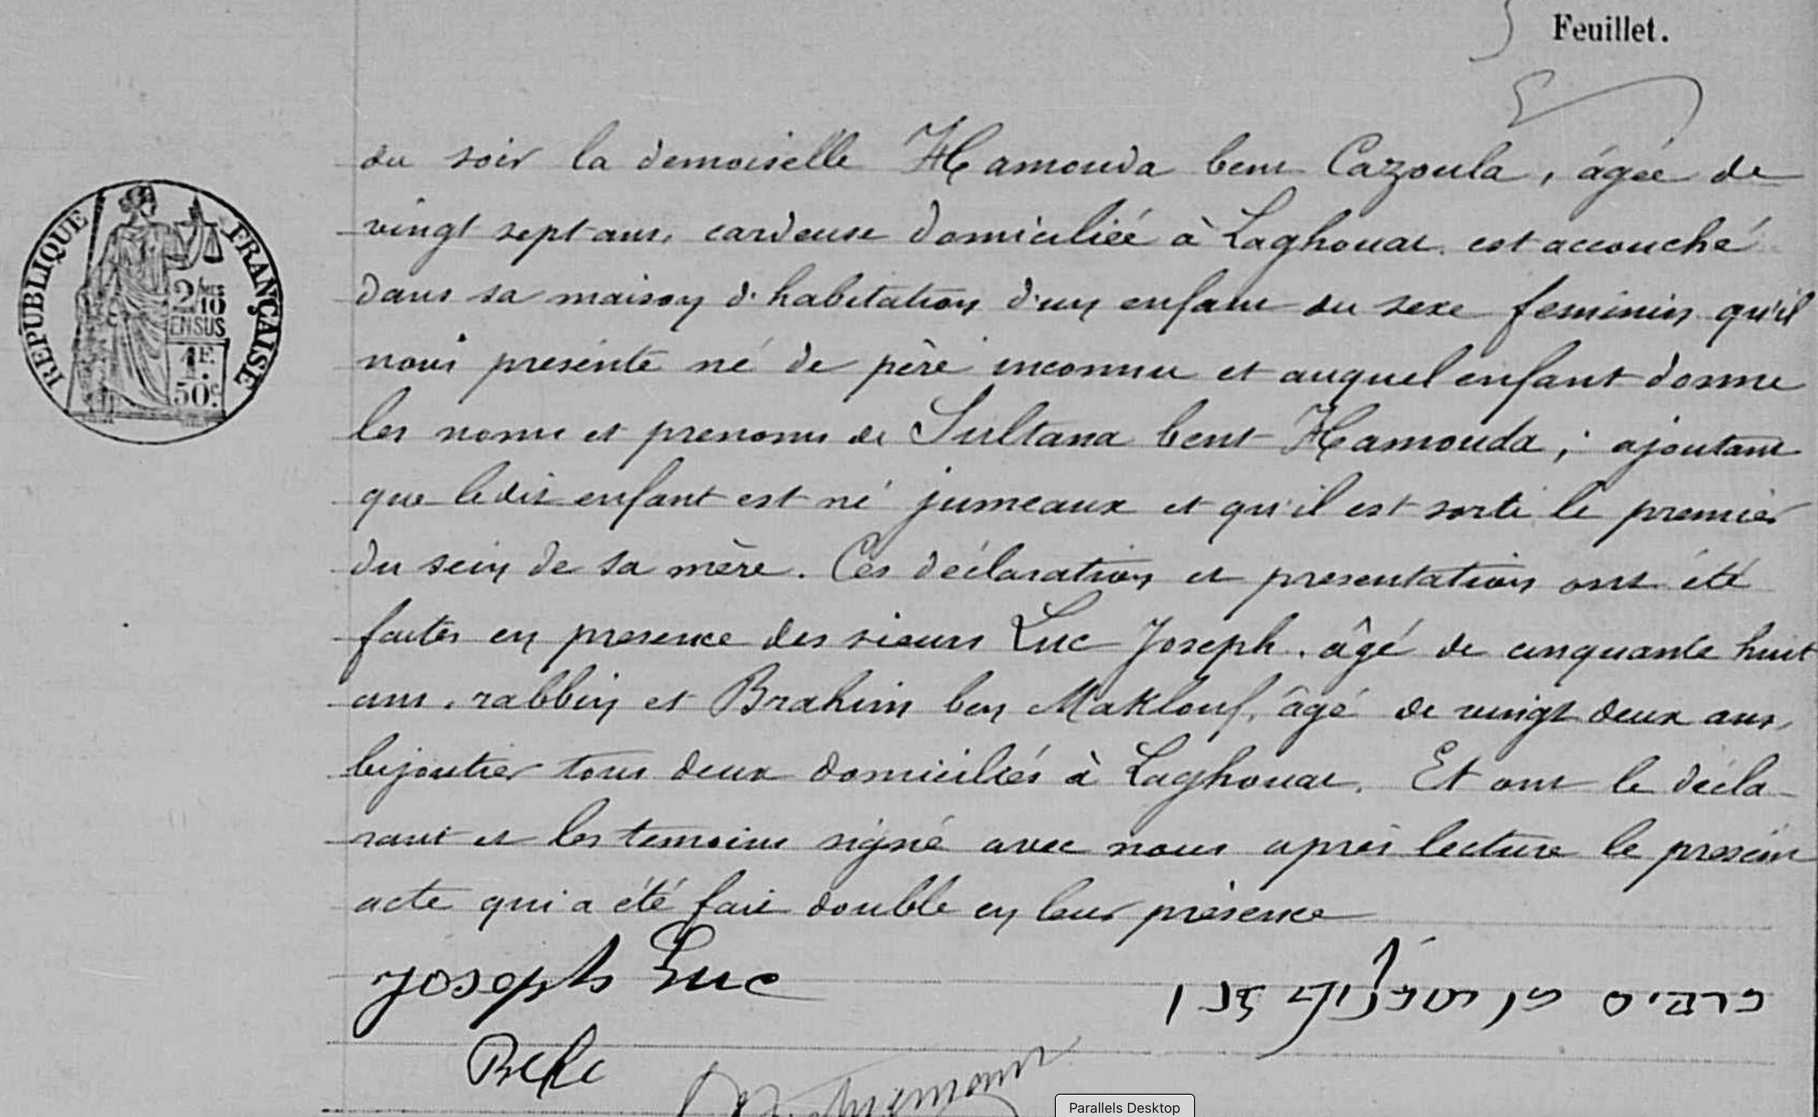 Feuillet.
du soir la demoiselle Hamouda bent Cazoula, âgée de
vingt sept ans, cardeuse domiciliée à Laghouat. est accouché
dans sa maison d'habitation d'un enfant du sexe feminin qu'il
nous présente né de père inconnu et auquel enfant donne
les noms et prenoms de Sultana bent Hamouda ; ajoutant
que ledit enfant est né jumeaux et qu'il est sorti le premier
du sein de sa mère. Ces déclaration et presentation ont été
faites en presence des sieurs Luc Joseph, âgé de cinquante huit
ans, rabbin et Brahim ben Maklouf, âgé de vingt deux ans,
bijoutier tous deux domiciliés à Laghouat. Et ont le décla-
rant et les temoins signé avec nous après lecture le présent
acte qui a été fait double en leur présence
Joseph Luc
RÉPUBLIQUE FRANÇAISE
2/10
EN SUS
1F.
50c.
Parallels Desktop